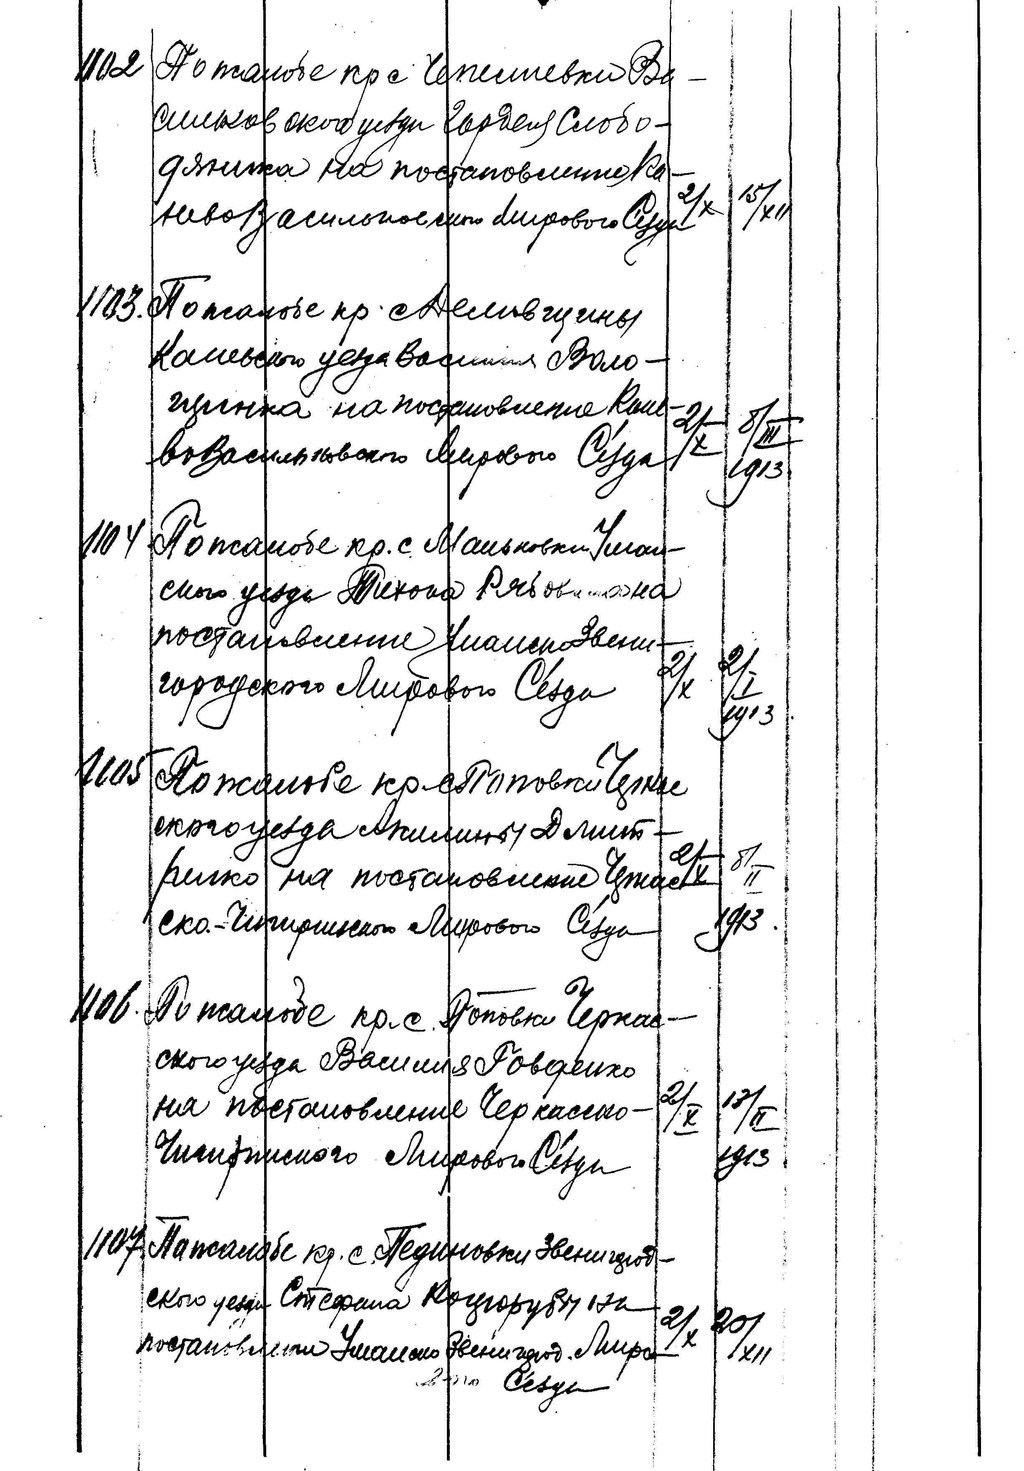 1102 По жалобе кр с Чепелиевки Ва-
сильковского уезда Гордея Слобо-
дяника на постановление Ка-
невоВасильковского Мирового Сезда 2/X 15/XII
1103. По жалобе кр. с
Каневского уезда Василия Воло-
щенка на постановление Кане-
воВасильковского Мирового Сезда 2/X 8/III
1913
1104 По жалобе кр. с. Маньковки Уман-
ского уезда Тихона на
постановление УманскоЗвени-
городского Мирового Сезда 2/X 2/I
1913
1105 По жалобе кр. с Поповки Черкас
ского уезда Акилины Дмит-
ренко на постановление Черкас
ско-Чигиринского Мирового Сезда 2/X 8/II
1913.
1106. По жалобе кр. с. Поповки Черкас-
ского уезда Василия Говденко
на постановление Черкасско-
Чигиринского Мирового Сезда 2/X 13/II
1913
1107. По жалобе кр. с. Пединовки Звенигород-
ского уезда Стефана на
постановление Уманско Звенигород. Миро
вого Сезда 2/X 20/XII